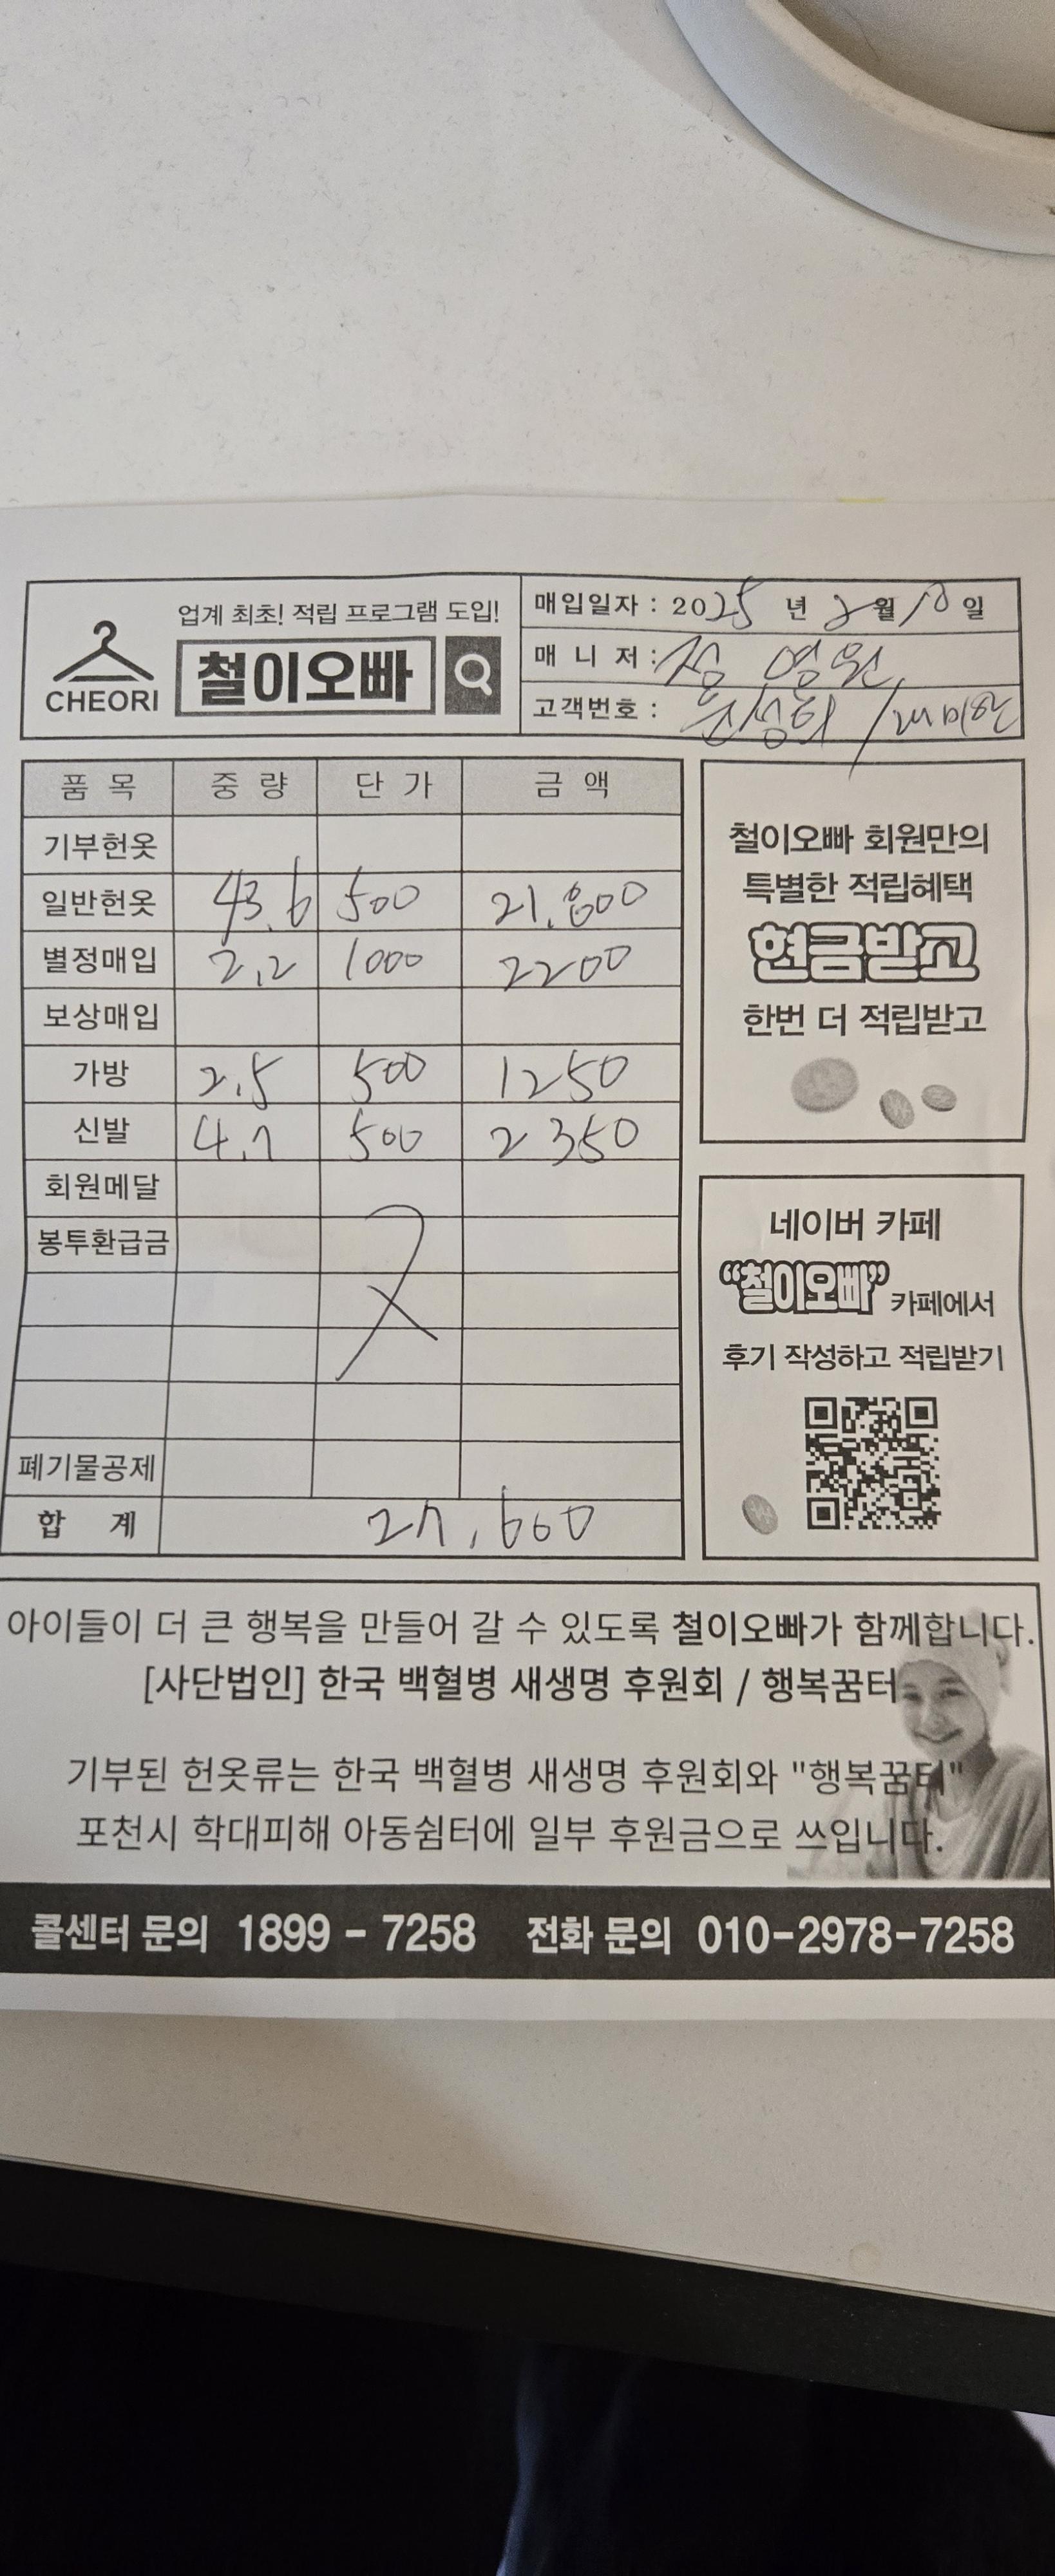 업계 최초! 적립 프로그램 도입!
CHEORI
철이오빠
매입일자 : 2025 년 2 월 10 일
매 니 저 : 정 영원
고객번호 :
품 목 중 량 단 가 금 액
기부헌옷
일반헌옷 43.6 500 21,800
별정매입 2.2 1000 2200
보상매입
가방 2.5 500 1250
신발 4.7 500 2350
회원메달
봉투환급금
폐기물공제
합 계 27,600
철이오빠 회원만의
특별한 적립혜택
현금받고
한번 더 적립받고
네이버 카페
“철이오빠” 카페에서
후기 작성하고 적립받기
아이들이 더 큰 행복을 만들어 갈 수 있도록 철이오빠가 함께합니다.
[사단법인] 한국 백혈병 새생명 후원회 / 행복꿈터
기부된 헌옷류는 한국 백혈병 새생명 후원회와 "행복꿈터"
포천시 학대피해 아동쉼터에 일부 후원금으로 쓰입니다.
콜센터 문의 1899 - 7258 전화 문의 010-2978-7258